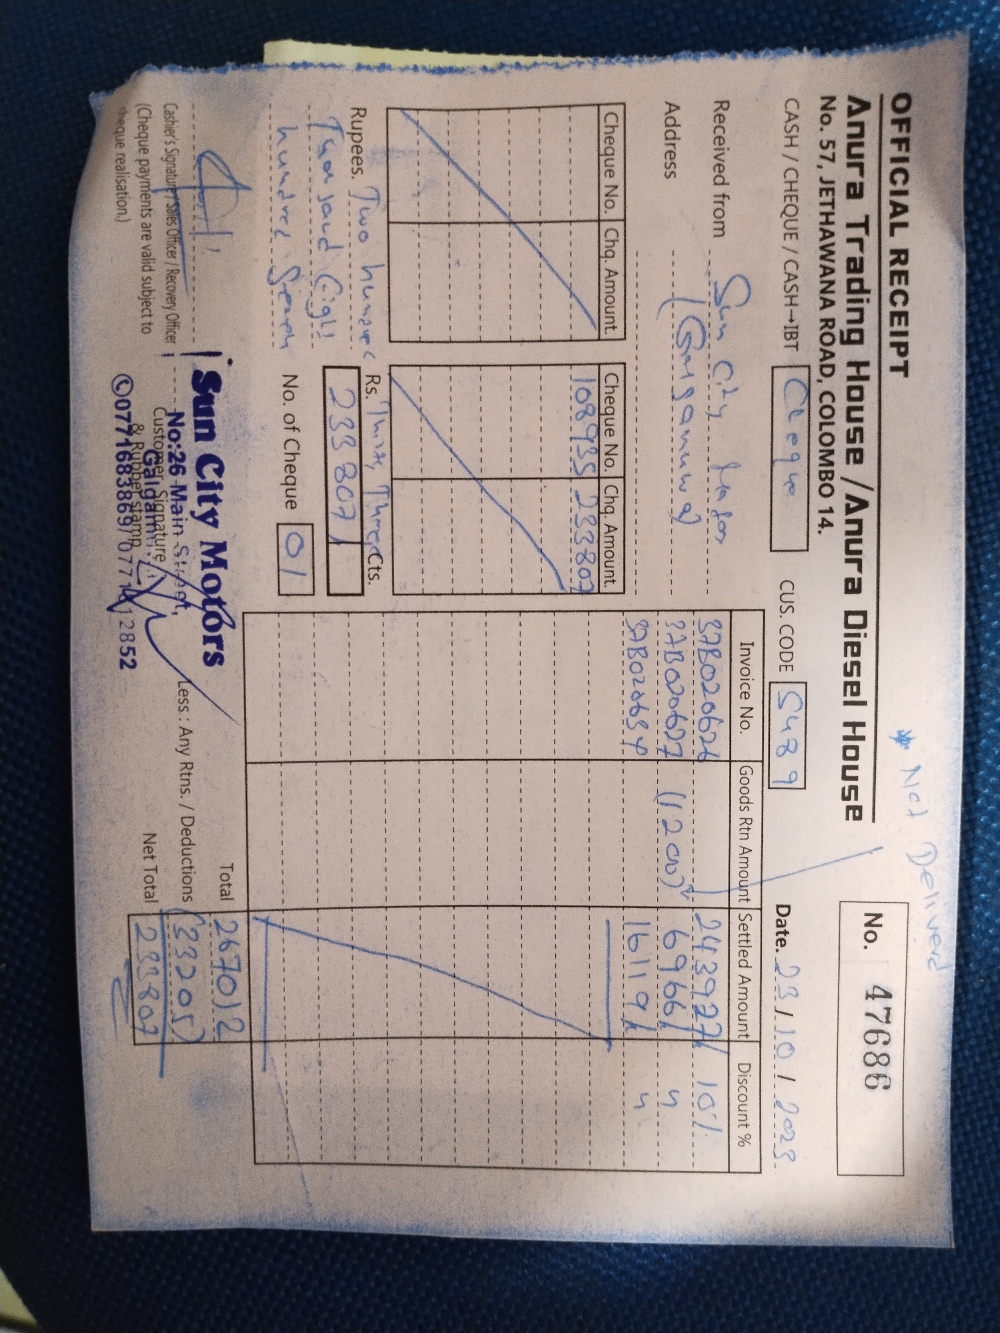 * Not Delivered
OFFICIAL RECEIPT
Anura Trading House /Anura Diesel House
No. 57, JETHAWANA ROAD, COLOMBO 14.
No. 47686
CASH / CHEQUE / CASH→IBT Cheque CUS. CODE 5489 Date. 23 / 10 / 2023
Received from Sun City Motors
Address (Galgamuwa)
Cheque No. Chq. Amount Cheque No. Chq. Amount
108935 233807
Invoice No. Goods Rtn Amount Settled Amount Discount %
37B020626 243927/ 10%
37B020627 (1200) 6966/ "
37B020634 16119/ "
Rupees. Two hundred Thirty Three
Thousand Eight
hundred Seven
Rs. Cts.
233807/
No. of Cheque 01
Total 267012
Less : Any Rtns. / Deductions (33205)
Net Total 233807
Cashier's Signature / Sales Officer / Recovery Officer
(Cheque payments are valid subject to
cheque realisation.)
Customer Signature
& Rubber stamp
Sun City Motors
No:26 Main Street,